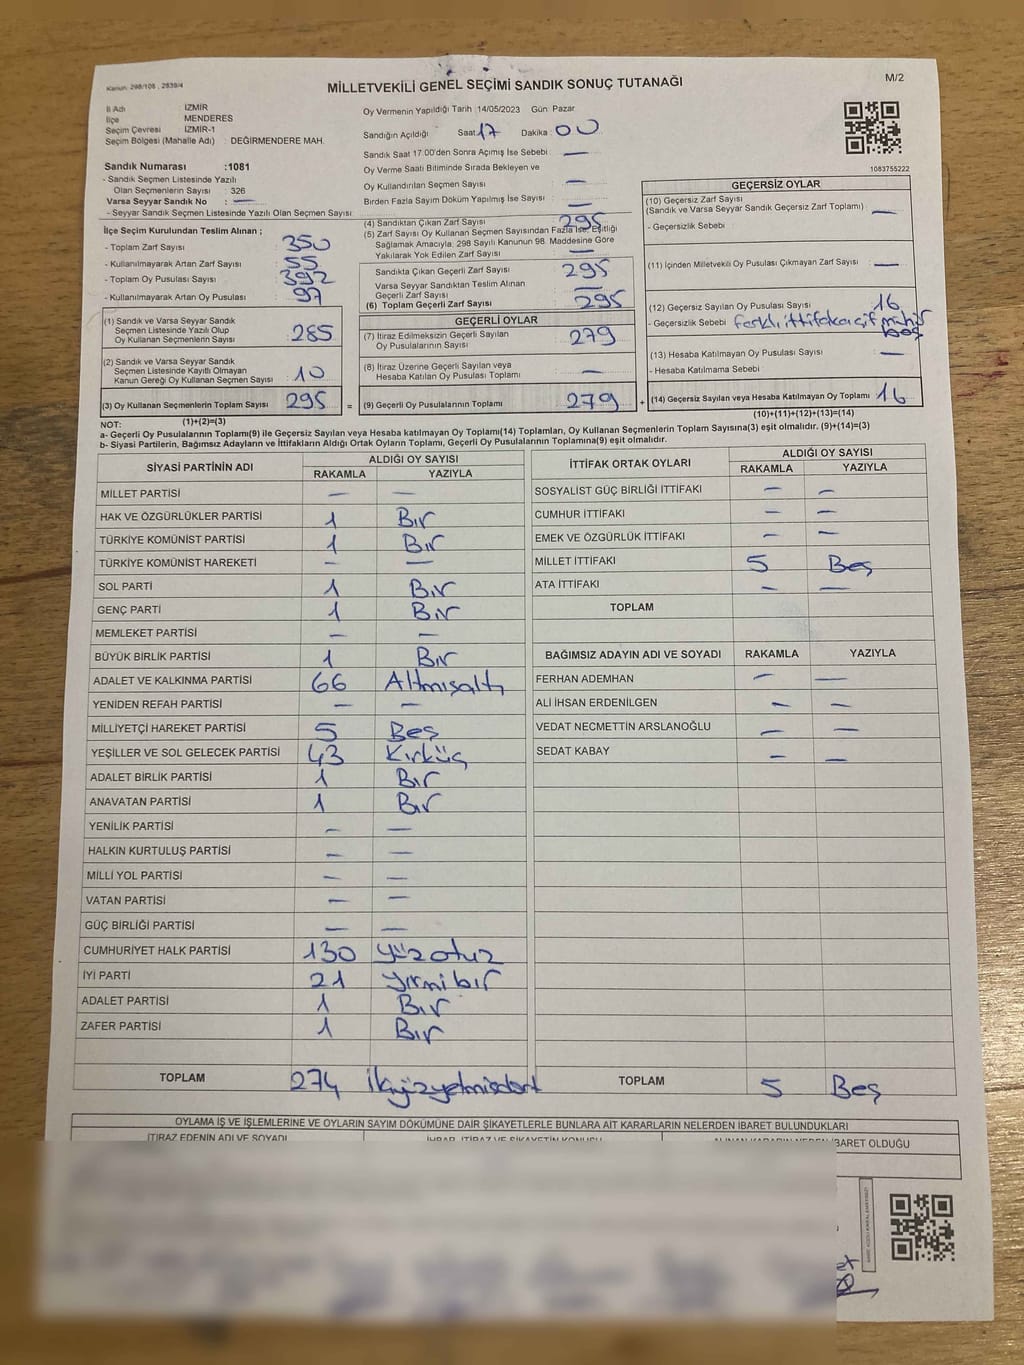 Kanun: 298/105 , 2839/4
MİLLETVEKİLİ GENEL SEÇİMİ SANDIK SONUÇ TUTANAĞI
M/2
İl Adı İZMİR
İlçe MENDERES
Seçim Çevresi İZMİR-1
Seçim Bölgesi (Mahalle Adı) : DEĞİRMENDERE MAH.
Oy Vermenin Yapıldığı Tarih 14/05/2023 Gün: Pazar
Sandığın Açıldığı Saat 17 Dakika: 00
Sandık Saat 17.00'den Sonra Açımış İse Sebebi : —
Oy Verme Saati Bitiminde Sırada Bekleyen ve
Oy Kullandırılan Seçmen Sayısı —
Birden Fazla Sayım Döküm Yapılmış İse Sayısı —
1083755222
Sandık Numarası :1081
- Sandık Seçmen Listesinde Yazılı
Olan Seçmenlerin Sayısı : 326
Varsa Seyyar Sandık No : —
- Seyyar Sandık Seçmen Listesinde Yazılı Olan Seçmen Sayısı
İlçe Seçim Kurulundan Teslim Alınan ;
- Toplam Zarf Sayısı : 350
- Kullanılmayarak Artan Zarf Sayısı : 55
- Toplam Oy Pusulası Sayısı : 392
- Kullanılmayarak Artan Oy Pusulası : 97
(1) Sandık ve Varsa Seyyar Sandık
Seçmen Listesinde Yazılı Olup
Oy Kullanan Seçmenlerin Sayısı 285
(2) Sandık ve Varsa Seyyar Sandık
Seçmen Listesinde Kayıtlı Olmayan
Kanun Gereği Oy Kullanan Seçmen Sayısı 10
(3) Oy Kullanan Seçmenlerin Toplam Sayısı 295 =
(1)+(2)=(3)
(4) Sandıktan Çıkan Zarf Sayısı 295
(5) Zarf Sayısı Oy Kullanan Seçmen Sayısından Fazla İse, Eşitliği
Sağlamak Amacıyla, 298 Sayılı Kanunun 98. Maddesine Göre
Yakılarak Yok Edilen Zarf Sayısı —
Sandıkta Çıkan Geçerli Zarf Sayısı 295
Varsa Seyyar Sandıktan Teslim Alınan
Geçerli Zarf Sayısı —
(6) Toplam Geçerli Zarf Sayısı 295
GEÇERLİ OYLAR
(7) İtiraz Edilmeksizin Geçerli Sayılan
Oy Pusulalarının Sayısı 279
(8) İtiraz Üzerine Geçerli Sayılan veya
Hesaba Katılan Oy Pusulası Toplamı —
(9) Geçerli Oy Pusulalarının Toplamı 279 +
GEÇERSİZ OYLAR
(10) Geçersiz Zarf Sayısı
(Sandık ve Varsa Seyyar Sandık Geçersiz Zarf Toplamı) —
- Geçersizlik Sebebi
(11) İçinden Milletvekili Oy Pusulası Çıkmayan Zarf Sayısı —
(12) Geçersiz Sayılan Oy Pusulası Sayısı 16
- Geçersizlik Sebebi farklı ittifaka çift mühür
boş
(13) Hesaba Katılmayan Oy Pusulası Sayısı —
- Hesaba Katılmama Sebebi
(14) Geçersiz Sayılan veya Hesaba Katılmayan Oy Toplamı 16
(10)+(11)+(12)+(13)=(14)
NOT:
a- Geçerli Oy Pusulalarının Toplamı(9) ile Geçersiz Sayılan veya Hesaba Katılmayan Oy Toplamı(14) Toplamları, Oy Kullanan Seçmenlerin Toplam Sayısına(3) eşit olmalıdır. (9)+(14)=(3)
b- Siyasi Partilerin, Bağımsız Adayların ve İttifakların Aldığı Ortak Oyların Toplamı, Geçerli Oy Pusulalarının Toplamına(9) eşit olmalıdır.
SİYASİ PARTİNİN ADI ALDIĞI OY SAYISI
RAKAMLA YAZIYLA
MİLLET PARTİSİ — —
HAK VE ÖZGÜRLÜKLER PARTİSİ 1 Bir
TÜRKİYE KOMÜNİST PARTİSİ 1 Bir
TÜRKİYE KOMÜNİST HAREKETİ — —
SOL PARTİ 1 Bir
GENÇ PARTİ 1 Bir
MEMLEKET PARTİSİ — —
BÜYÜK BİRLİK PARTİSİ 1 Bir
ADALET VE KALKINMA PARTİSİ 66 Altmışaltı
YENİDEN REFAH PARTİSİ — —
MİLLİYETÇİ HAREKET PARTİSİ 5 Beş
YEŞİLLER VE SOL GELECEK PARTİSİ 43 Kırküç
ADALET BİRLİK PARTİSİ 1 Bir
ANAVATAN PARTİSİ 1 Bir
YENİLİK PARTİSİ — —
HALKIN KURTULUŞ PARTİSİ — —
MİLLİ YOL PARTİSİ — —
VATAN PARTİSİ — —
GÜÇ BİRLİĞİ PARTİSİ — —
CUMHURİYET HALK PARTİSİ 130 Yüzotuz
İYİ PARTİ 21 Yirmibir
ADALET PARTİSİ 1 Bir
ZAFER PARTİSİ 1 Bir
TOPLAM 274 İkiyüzyetmişdört
İTTİFAK ORTAK OYLARI ALDIĞI OY SAYISI
RAKAMLA YAZIYLA
SOSYALİST GÜÇ BİRLİĞİ İTTİFAKI — —
CUMHUR İTTİFAKI — —
EMEK VE ÖZGÜRLÜK İTTİFAKI — —
MİLLET İTTİFAKI 5 Beş
ATA İTTİFAKI — —
TOPLAM
BAĞIMSIZ ADAYIN ADI VE SOYADI RAKAMLA YAZIYLA
FERHAN ADEMHAN — —
ALİ İHSAN ERDENİLGEN — —
VEDAT NECMETTİN ARSLANOĞLU — —
SEDAT KABAY — —
TOPLAM 5 Beş
OYLAMA İŞ VE İŞLEMLERİNE VE OYLARIN SAYIM DÖKÜMÜNE DAİR ŞİKAYETLERLE BUNLARA AİT KARARLARIN NELERDEN İBARET BULUNDUKLARI
İTİRAZ EDENİN ADI VE SOYADI İHBAR, İTİRAZ VE ŞİKAYETİN KONUSU ALINAN KARARIN NEDEN İBARET OLDUĞU